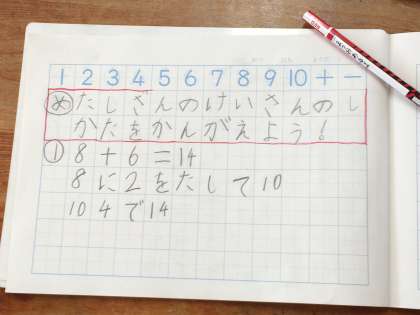 1 2 3 4 5 6 7 8 9 10 + −
め たしざんのけいさんのし
かたをかんがえよう!
① 8+6=14
8に2をたして10
10 4で14